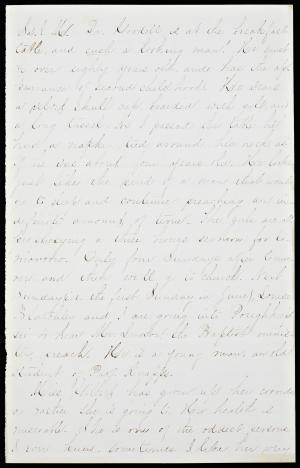 Dr. Goodell is at the breakfast
table, and such a looking man! He must
be over eighty years old, and has the ap-
pearance of second childhood. He wears
a skull cap, braided with gilt and
a long tassel. As I passed his table he
had a napkin tied around his neck as
if he was about four years old. He looks
just like the kind of a man that would
go to sleep and continue preaching an in-
definite amount of time. The girls are all
a three hours sermon for to-
morrow. Only four Sundays after tomor-
row and then we'll go to church. Next
Sunday, the first Sunday in June, Louise
and I are going into Pough-
to hear Mr. the Baptist minis-
ter, preach. He is a young man, an old
student of Prof.
Miss has grown
or rather she is going to. Her health is
miserable. She is one of the oddest persons
I ever knew. Sometimes I like her very